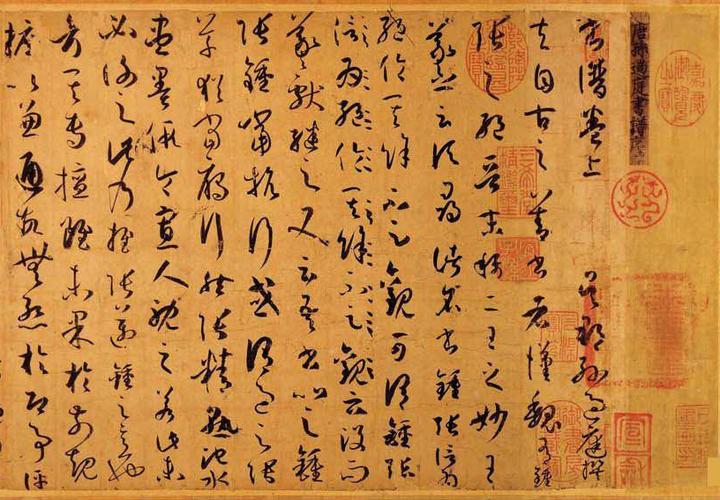 唐孫過庭書譜序
書譜卷上 吳郡孫過庭撰
夫自古之善書者漢魏有鍾
張之絕晉末稱二王之妙王
羲之云頃尋諸名書鍾張信為
絕倫其餘不足觀可謂鍾張
信為絕倫其餘不足觀云沒而
羲獻繼之又云吾書比之鍾
張鍾當抗行或謂過之張
草猶當鴈行然張精熟池水
盡墨假令寡人耽之若此未
必謝之此乃推張邁鍾之意也
考其專擅雖未果於前規
摭以兼通故無慚於即事評